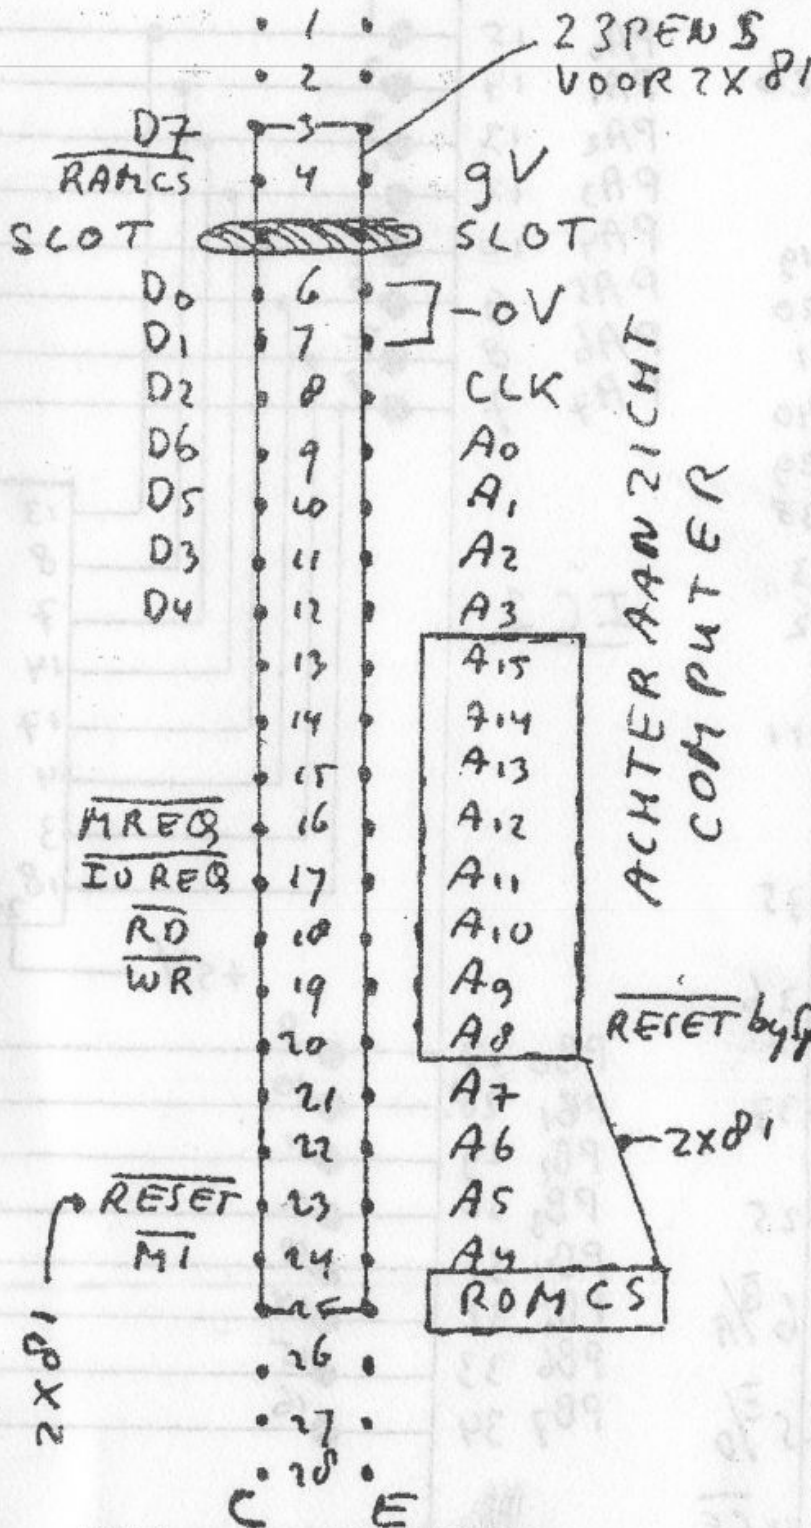 1 23 PENS
2 VOOR ZX81
D7 3
RAMCS 4 9V
SLOT SLOT
D0 6 -0V
D1 7
D2 8 CLK
D6 9 A0
D5 10 A1
D3 11 A2
D4 12 A3
13 A15
14 A14
15 A13
MREQ 16 A12
IOREQ 17 A11
RD 18 A10
WR 19 A9
20 A8
21 A7
22 A6
RESET 23 A5
M1 24 A4
25 ROMCS
26
27
28
C E
ACHTER AANZICHT
COMPUTER
RESET by
ZX81
ZX81